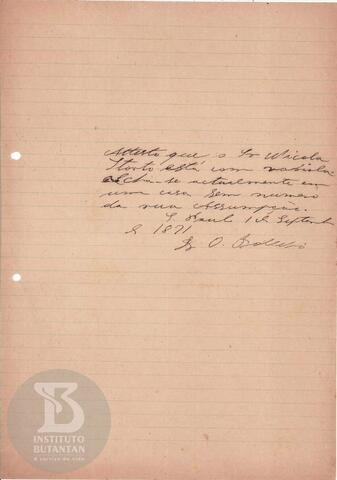 Attesto que o Sr Nicola
Storto está com variola
acha-se actualmente em
uma casa sem numero
da rua Assumpção.
S. Paulo 1 de Septembr
de 1891
Dr O.
INSTITUTO
BUTANTAN
A serviço da vida